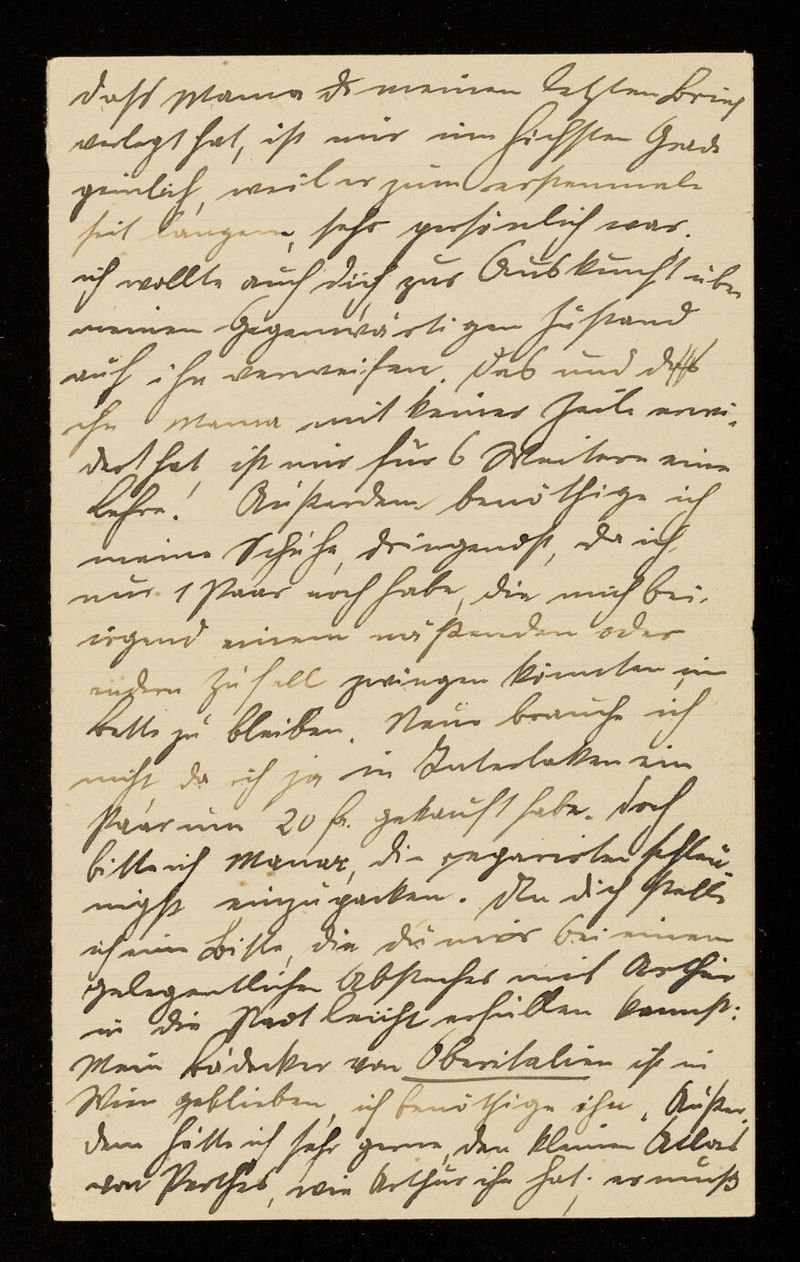 dass Mama meinen letzten Brief
verlegt hat, ist mir im höchsten Grade
peinlich, weil er zum erstenmale
seit langem, sehr persönlich war.
ich wollte auch dich zur Auskunft über
meinen gegenwärtigen Zustand
auf ihn verweisen. Das und dass
ihn Mama mit keiner Zeile erwi-
dert hat, ist mir für Weitere eine
Lehre! Außerdem benöthige ich
meine Schuhe, dringendst, da ich
nur 1 Paar noch habe, die mich bei
irgend einem nässenden oder
andern Zufall zwingen könnten im
Bette zu bleiben. Neue brauche ich
nicht da ich ja in Interlaken ein
Paar um 20 fr. gekauft habe. Doch
bitte ich Mama, die reparirten schleu-
nigst einzupacken. An dich stelle
ich eine Bitte, die du mir bei einem
gelegentlichen Abstecher mit Arthur
in die Stadt leicht erfüllen kannst:
Mein Bädecker von Oberitalien ist in
Wien geblieben, ich benöthige ihn. Außer-
dem hätte ich sehr gerne, den kleinen Atlas
von Perthes, wie Arthur ihn hat; er muß